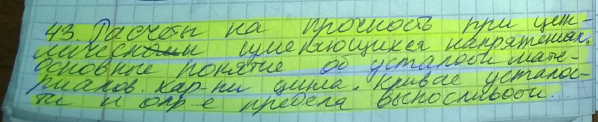 43 Расчёты на прочность при цик-
лическом изменяющихся напряжениях.
основные понятие об усталости мате-
риалов. хар-ки цикла. Кривае усталос-
ти и опр-е предела выносливости.